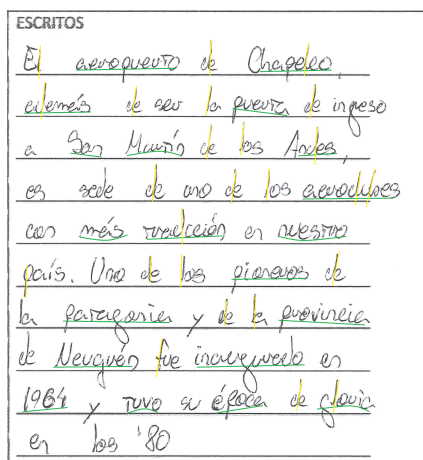 ESCRITOS
El aeropuerto de Chapelco,
además de ser la puerta de ingreso
a San Martín de los Andes,
es sede de uno de los aeroclubes
con más tradición en nuestro
país. Uno de los pioneros de
la patagonia y de la provincia
de Neuquén fue inaugurado en
1964 y tuvo su época de gloria
en los '80